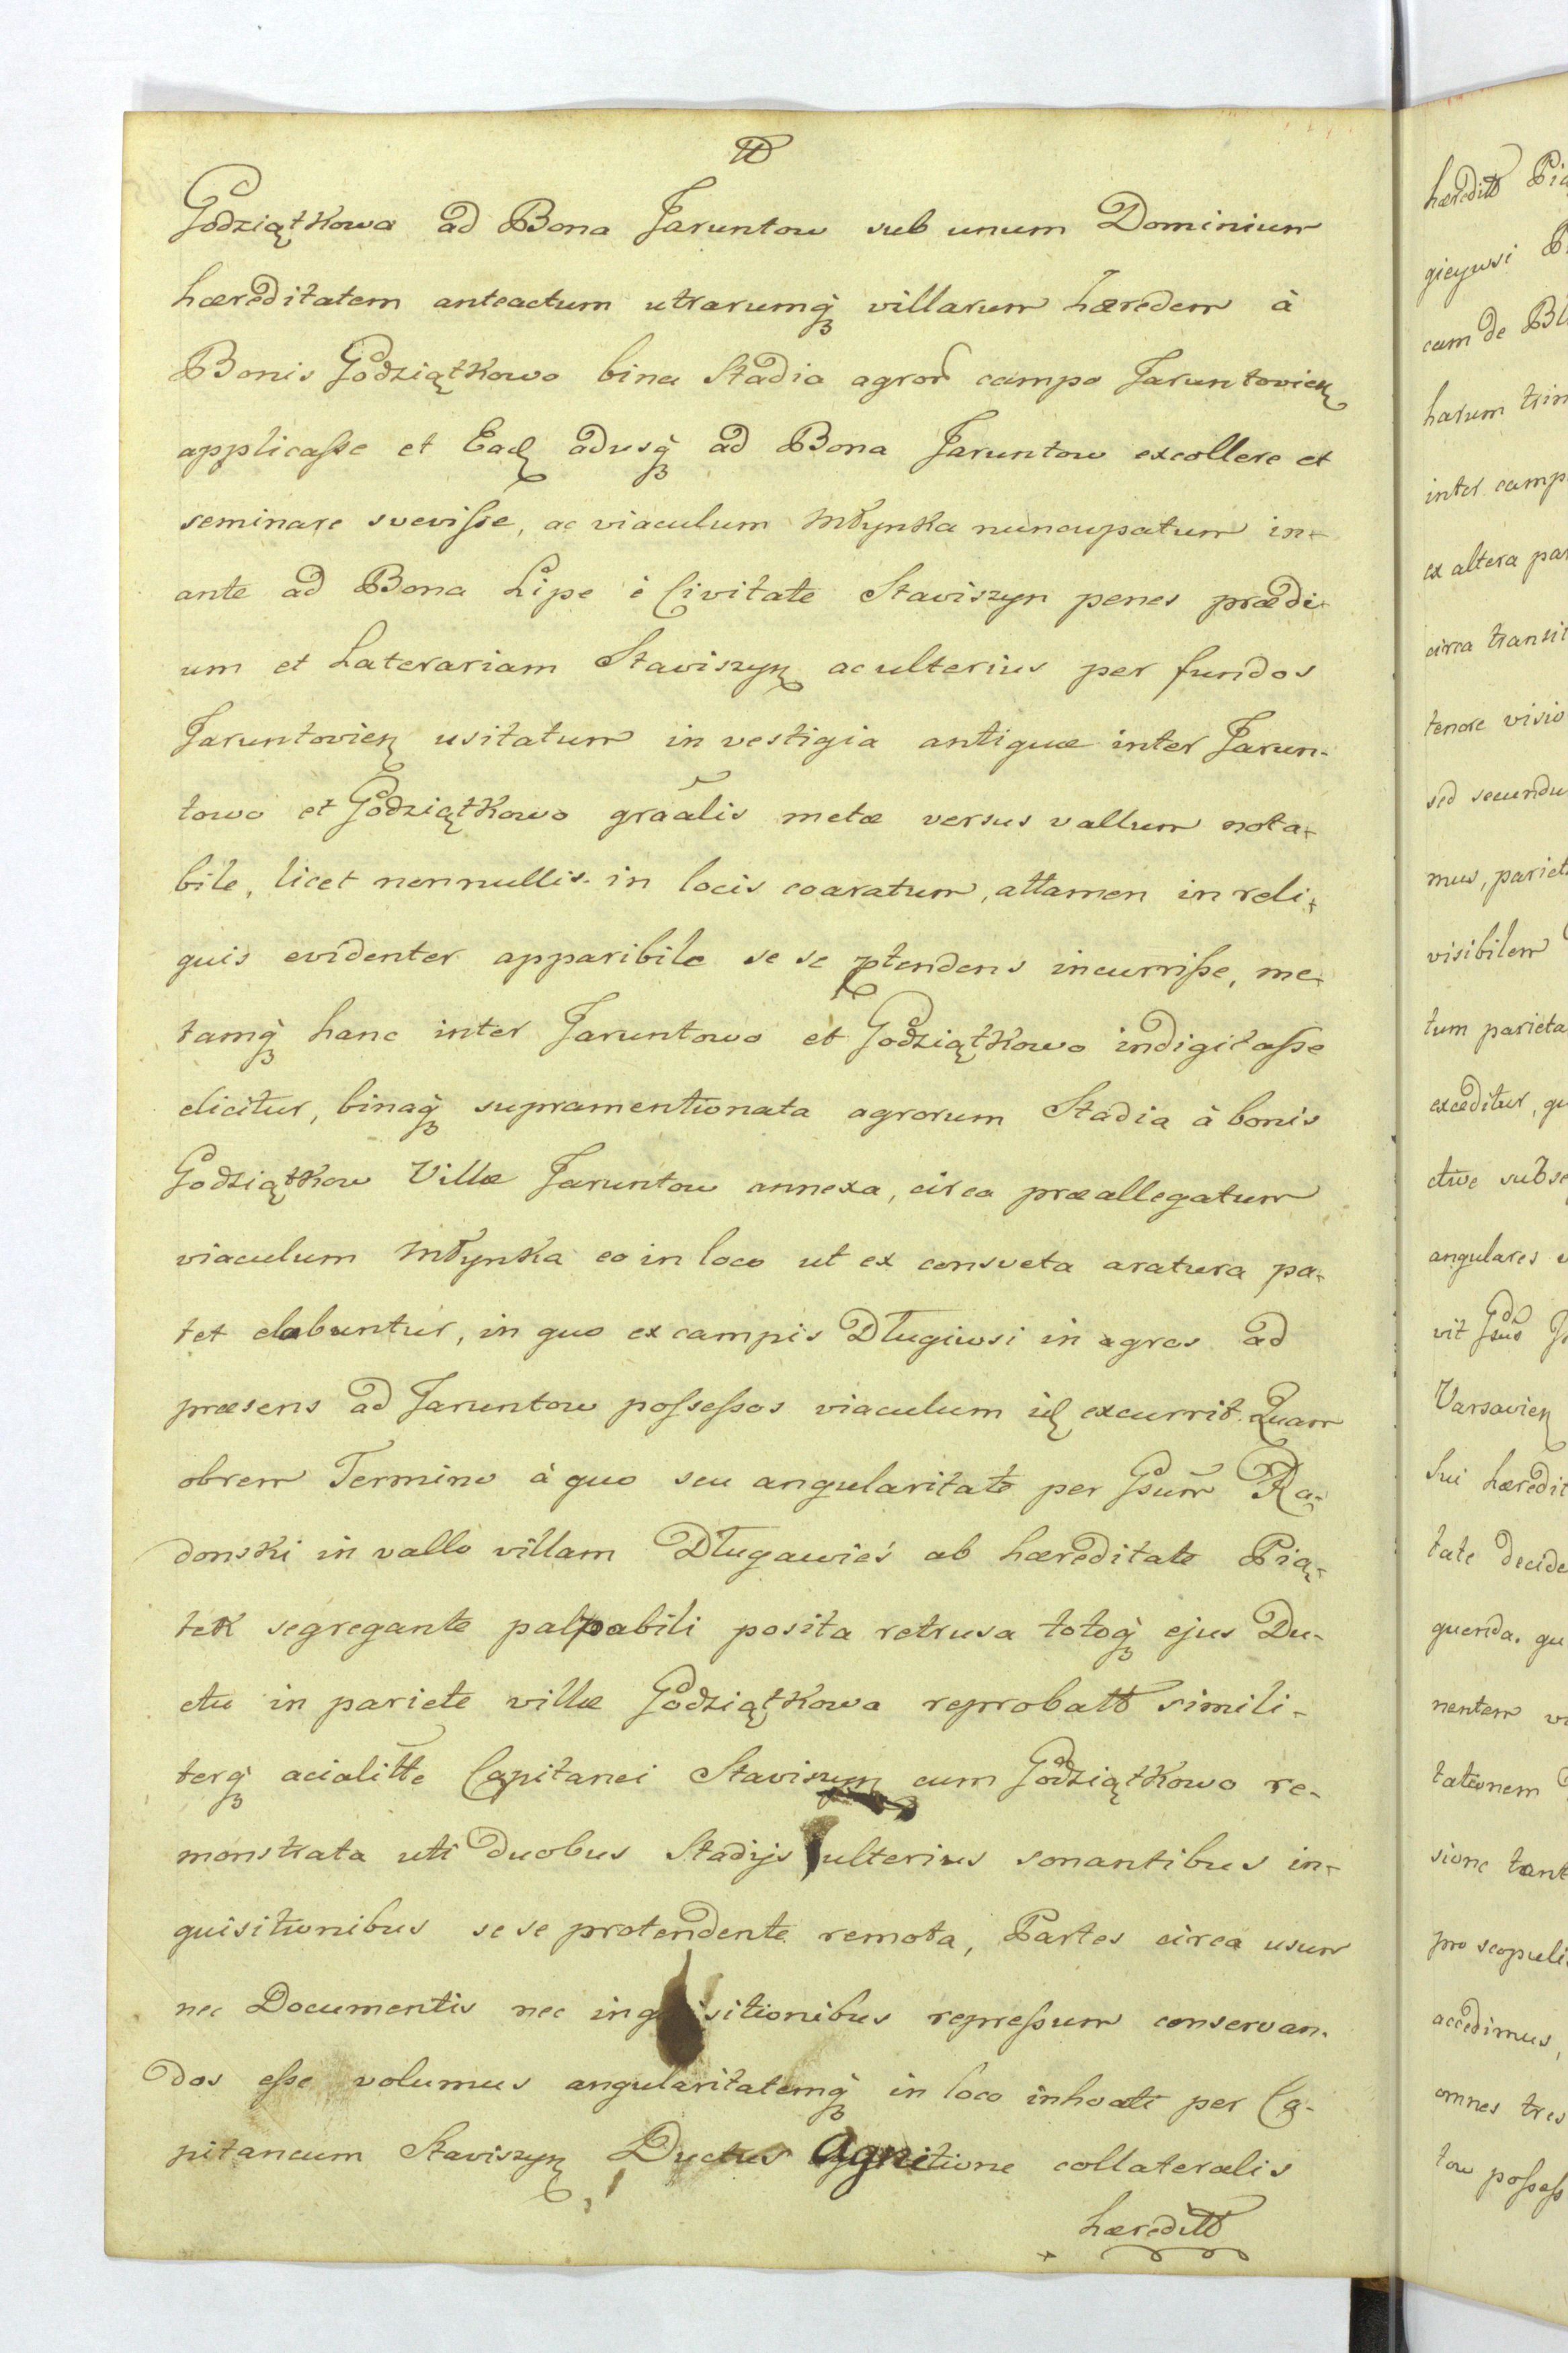 Godziątkowa ad Bona Jaruntow sub unum Dominium
hæreditatem anteactum utrarumq̀ villarum hæredem à
Bonis Godziątkowo bina Stadia agror̃ campo Jaruntovien̨
applicaſse et Ead̨ adusq̀ ad Bona Jaruntow excollere et
seminare sveviſse, ac viaculum Młynka nuncupatum in-
ante ad Bona Lipe è Civitate Staviszyn penes prædi-
um et Laterariam Staviszyn̨ ac ulterius per fundos
Jaruntovien̨ usitatum in vestigia antiquæ inter Jarun-
towo et Godziątkowo gra̅alis metæ versus vallum nota-
bile, licet nonnullis in locis coaratum, attamen in reli-
quis evidenter apparibile se se ꝓtendens incurriſse, me-
tamq̀ hanc inter Jaruntowo et Godziątkowo indigitaſse
elicitur, binaq̀ supramentionata agrorum Stadia à bonis
Godziątkow Villæ Jaruntow annexa, circa præallegatum
viaculum Młynka eo in loco ut ex consveta aratura pa-
tet elabuntur, in quo ex campis Długiwsi in agros ad
præsens ad Jaruntow poſseſsos viaculum id̨ excurrit. Quam
obrem Termino à quo seu angularitate per Gsum̃ Ra-
donski in vallo villam Długawieś ab hæreditate Pią-
tek segregante palpabili posita retrusa totoq̀ ejus Du-
ctu in pariete villæ Godziątkowa reprobatt simili-
terq̀ acialitte Capitanei Staviszyn̨ cum Godziątkowo re-
monstrata uti duobus Stadijs ulterius sonantibus in-
quisitionibus se se protendente remota, Partes circa usum
nec Documentis nec inquisitionibus repreſsum conservan-
dos eſse volumus angularitatemq̀ in loco inhoati per Ca-
pitaneum Staviszyn̨ Ductus Agnitione collateralis
hæreditt
hæreditt
giejwsi
cum de
harum
inter camp
ex altera
circa
tenore visio
sed secundu
mus, pariet
visibilem
tum parieta
exceditur, qu
ctive subse
angulares
vit Gsus
Varsavien̨
sui hæredit
tate decide
quenda. qu
nentem
tationem
sione tant
pro scopuli
accedimus,
omnes tres
tow poſseſs